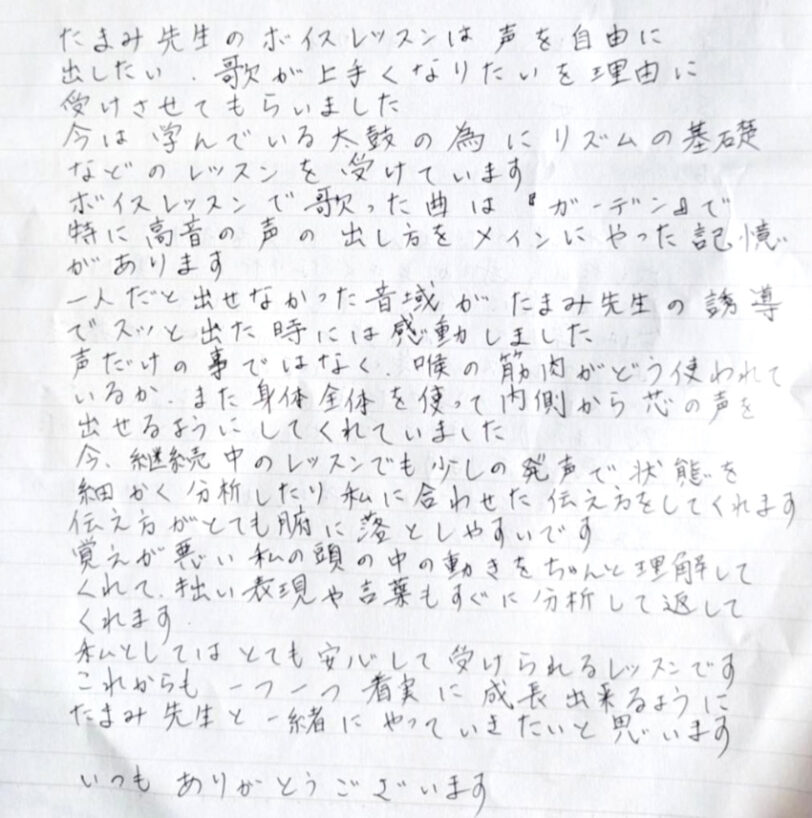 たまみ先生のボイスレッスンは声を自由に
出したい、歌が上手くなりたいを理由に
受けさせてもらいました
今は学んでいる太鼓の為にリズムの基礎
などのレッスンを受けています
ボイスレッスンで歌った曲は『ガーデン』で
特に高音の声の出し方をメインにやった記憶
があります
一人だと出せなかった音域がたまみ先生の誘導
でスッと出た時には感動しました
声だけの事ではなく、喉の筋肉がどう使われて
いるか、また身体全体を使って内側から芯の声を
出せるようにしてくれていました
今、継続中のレッスンでも少しの発声で状態を
細かく分析したり私に合わせた伝え方をしてくれます
伝え方がとても腑に落としやすいです
覚えが悪い私の頭の中の動きをちゃんと理解して
くれて、拙い表現や言葉もすぐに分析して返して
くれます
私としてはとても安心して受けられるレッスンです
これからも一つ一つ着実に成長出来るように
たまみ先生と一緒にやっていきたいと思います
いつもありがとうございます